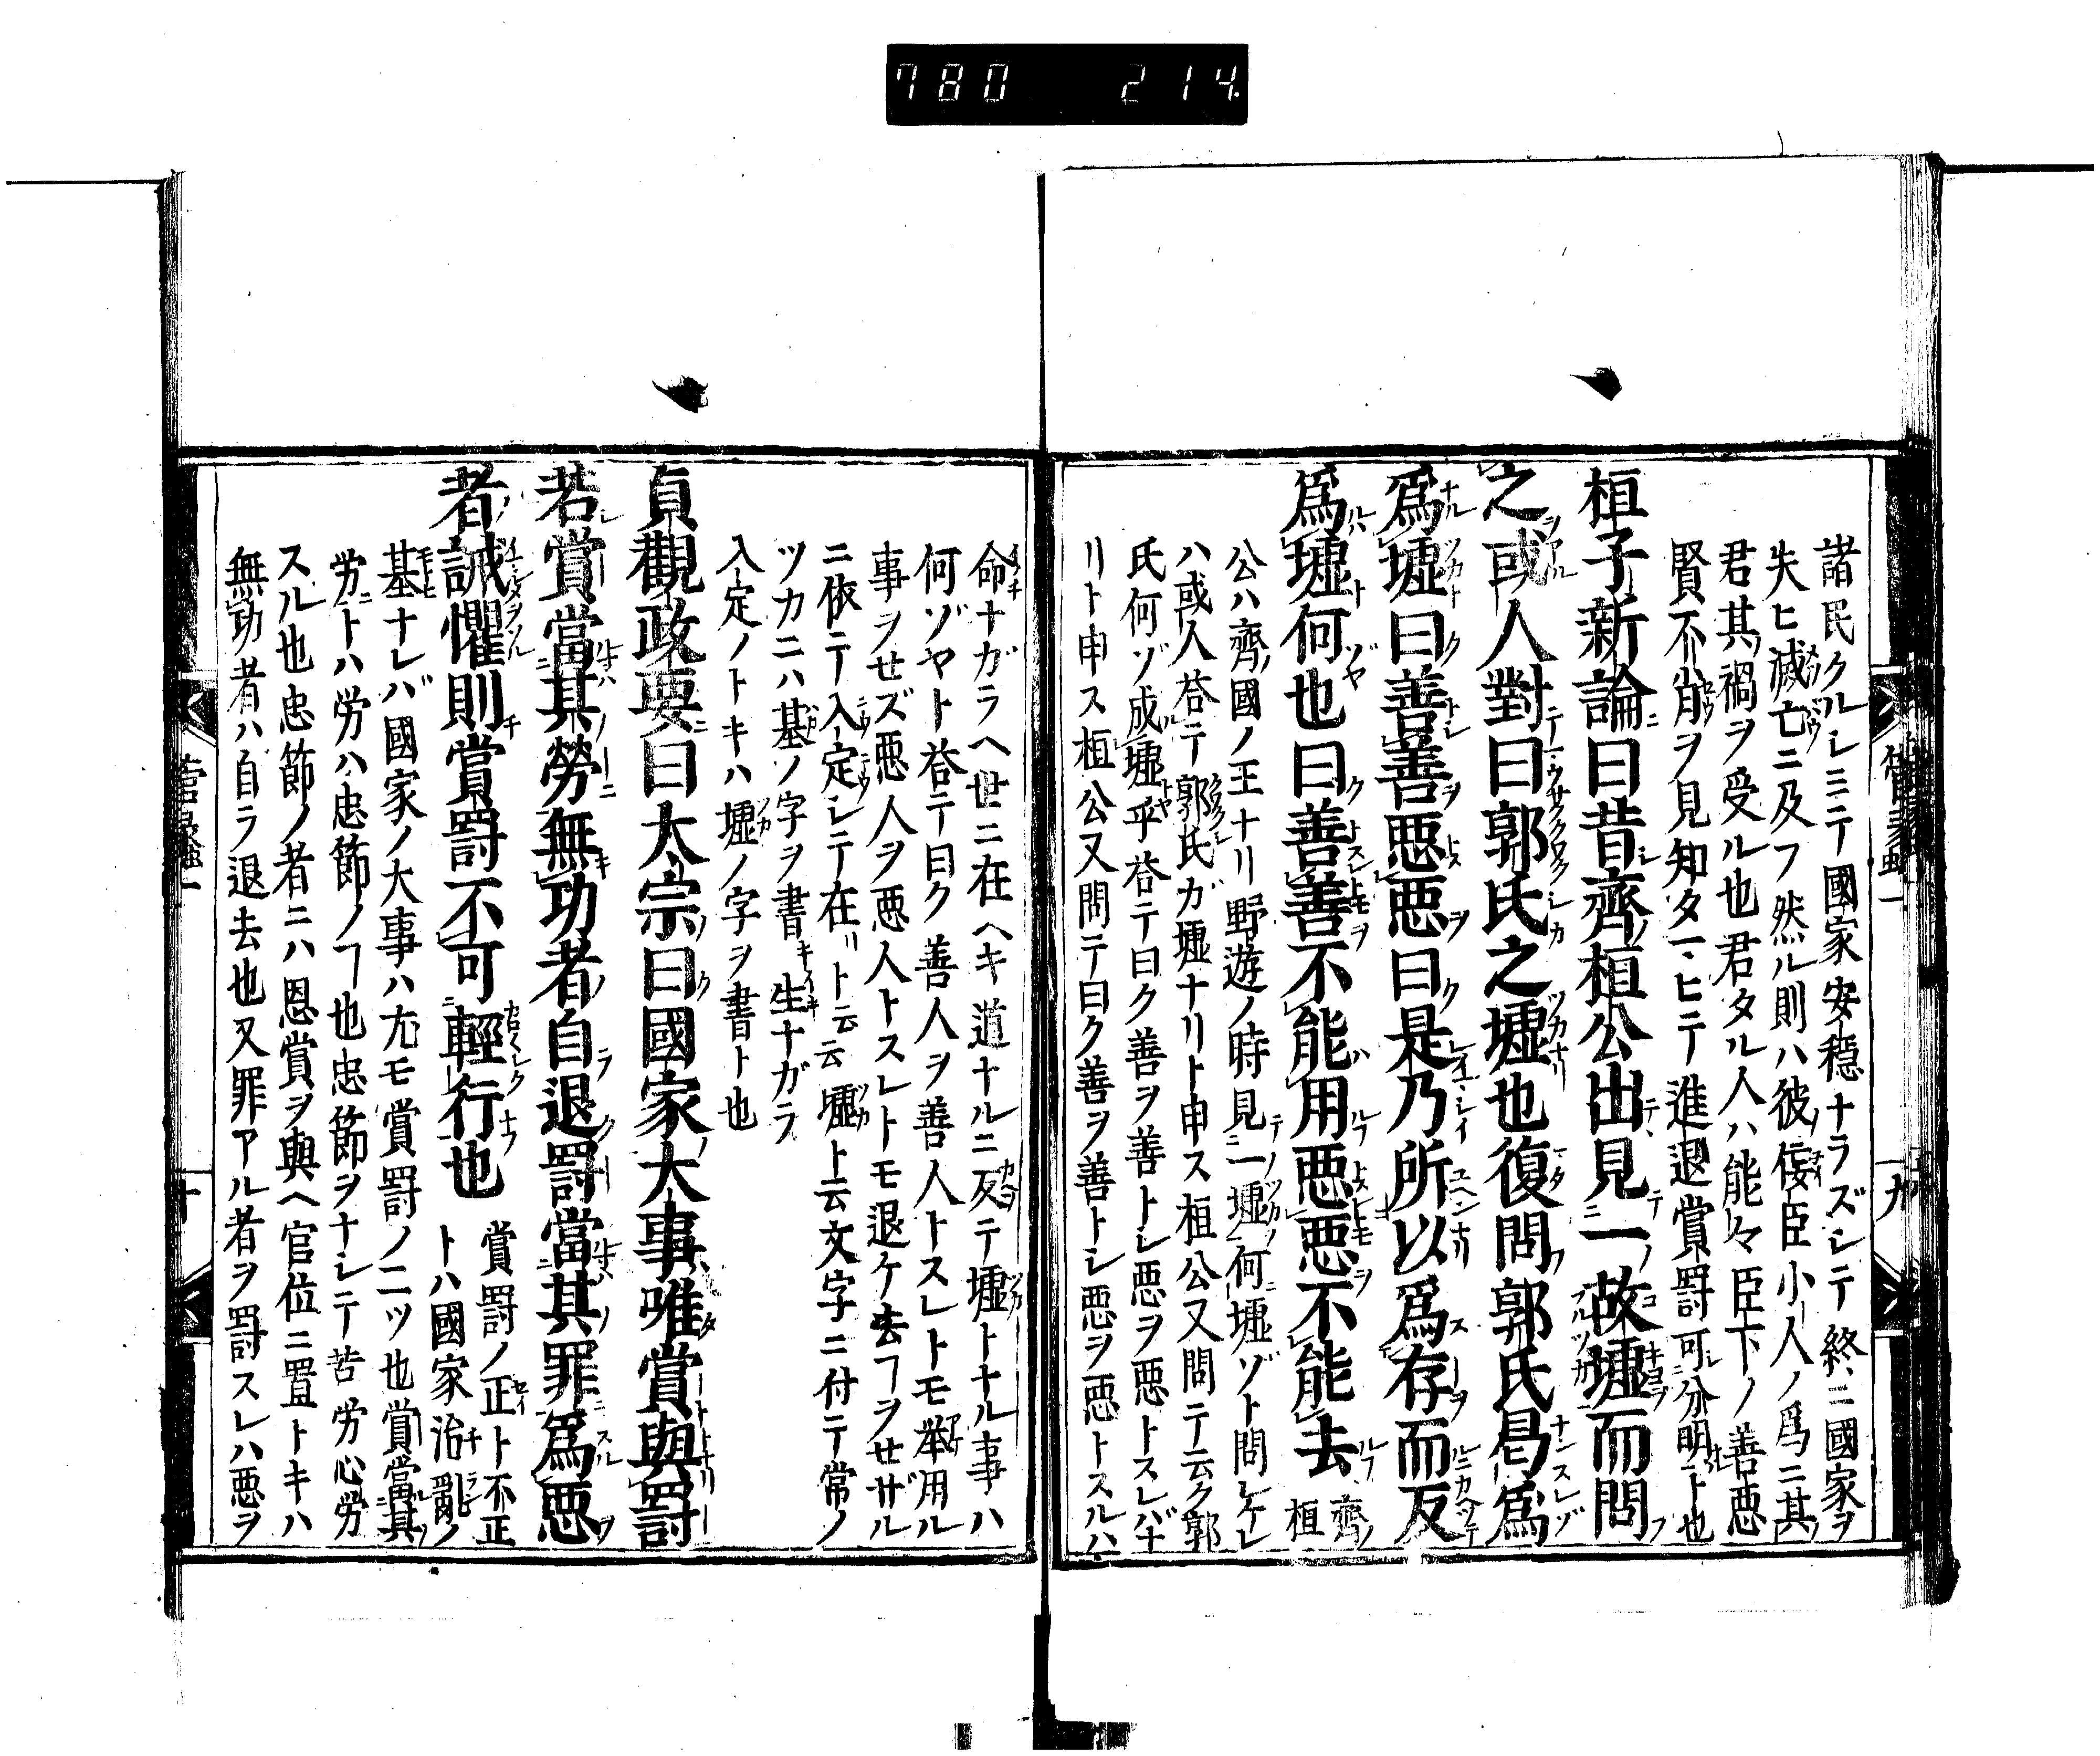 780 214
諸民クルレミテ國家安穩ナラズシテ終ニ國家ヲ
失ヒ滅亡ニ及フ然ル則ハ彼佞臣小人ノ爲ニ其
君其禍ヲ受ル也君タル人ハ能々臣下ノ善悪
賢不肖ヲ見知タマヒテ進退賞罸可分明ト也
桓子新論曰昔齊桓公出見一故墟而問
之或人對曰郭氏之墟也復問郭氏曷爲
爲墟曰善善悪悪曰是乃所以爲存而反
爲墟何也曰善善不能用悪悪不能去 齊桓
公ハ齊國ノ王ナリ野遊ノ時見一墟何墟ゾト問レケレ
ハ或人荅テ郭氏ガ墟ナリト申ス桓公又問テ云ク郭
氏何ゾ成墟乎荅テ曰ク善ヲ善トシ悪ヲ悪トスレバナ
リト申ス桓公又問テ曰ク善ヲ善トシ悪ヲ悪トスルハ
九
命ナガラヘ世ニ在ヘキ道ナルニ反テ墟トナル事ハ
何ゾヤト荅テ曰ク善人ヲ善人トスレトモ举用ル
事ヲせズ悪人ヲ悪人トスレトモ退ケ去フヲせザル
ニ依テ入定シテ在リト云云墟ト云文字ニ付テ常ノ
ツカニハ墓ノ字ヲ書生ナガラ
入定ノトキハ墟ノ字ヲ書ト也
貞觀政要曰太宗曰國家大事唯賞與罸
若賞當其勞無功者自退罸當其罪爲悪
者誡懼則賞罸不可輕行也 賞罸ノ正ト不正トハ國家治亂ノ
基ナレバ國家ノ大事ハ尤モ賞罸ノ二ツ也賞當其
労トハ労ハ忠節ノヿ也忠節ヲナシテ苦労心労
スル也忠節ノ者ニハ恩賞ヲ與ヘ官位ニ置トキハ
無功者ハ自ラ退去也又罪アル者ヲ罸スレハ悪ヲ
十